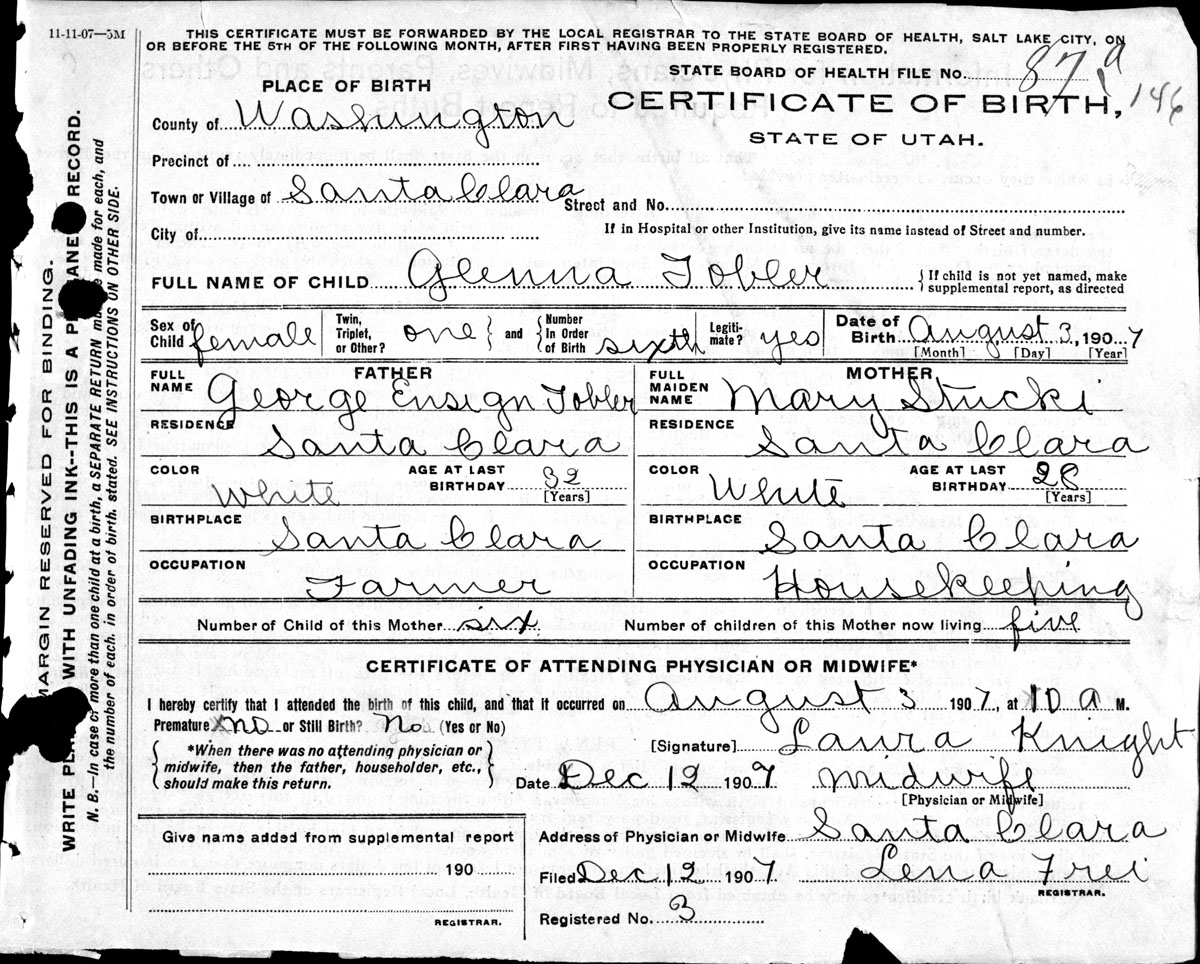 11-11-07—5M
THIS CERTIFICATE MUST BE FORWARDED BY THE LOCAL REGISTRAR TO THE STATE BOARD OF HEALTH, SALT LAKE CITY, ON
OR BEFORE THE 5TH OF THE FOLLOWING MONTH, AFTER FIRST HAVING BEEN PROPERLY REGISTERED.
STATE BOARD OF HEALTH FILE NO. 87 a
146
PLACE OF BIRTH
CERTIFICATE OF BIRTH,
STATE OF UTAH.
County of Washington
Precinct of
Town or Village of Santa Clara Street and No.
City of If in Hospital or other Institution, give its name instead of Street and number.
FULL NAME OF CHILD Glenna Tobler {If child is not yet named, make
supplemental report, as directed
Sex of Child female Twin, Triplet, or Other? one } and { Number In Order of Birth sixth Legiti- mate? yes Date of Birth August 3, 1907
[Month] [Day] [Year]
FATHER MOTHER
FULL NAME George Ensign Tobler FULL MAIDEN NAME Mary Stucki
RESIDENCE Santa Clara RESIDENCE Santa Clara
COLOR White AGE AT LAST BIRTHDAY 32 [Years] COLOR White AGE AT LAST BIRTHDAY 28 [Years]
BIRTHPLACE Santa Clara BIRTHPLACE Santa Clara
OCCUPATION Farmer OCCUPATION Housekeeping
Number of Child of this Mother six Number of children of this Mother now living five
CERTIFICATE OF ATTENDING PHYSICIAN OR MIDWIFE*
I hereby certify that I attended the birth of this child, and that it occurred on August 3 1907, at 10 A M.
Premature no or Still Birth? No (Yes or No)
{*When there was no attending physician or
midwife, then the father, householder, etc.,
should make this return.}
[Signature] Laura Knight
Date Dec 12 1907 midwife
[Physician or Midwife]
Give name added from supplemental report
190
REGISTRAR.
Address of Physician or Midwife Santa Clara
Filed Dec 12 1907 Lena Frei
REGISTRAR.
Registered No. 3
MARGIN RESERVED FOR BINDING.
WRITE WITH UNFADING INK--THIS IS A RECORD.
N. B.—In case of more than one child at a birth, a SEPARATE RETURN must be made for each, and
the number of each, in order of birth, stated. SEE INSTRUCTIONS ON OTHER SIDE.